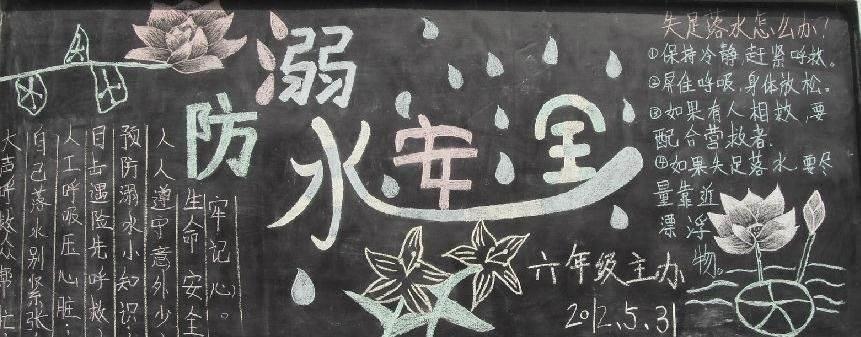 防溺水安全
牢记心。
生命安全
人人遵守意外少
预防溺水小知识
目击遇险先呼救
人工呼吸压心脏
自己落水别紧张
大声呼救众帮忙
失足落水怎么办!
①保持冷静,赶紧呼救。
②屏住呼吸,身体放松。
③如果有人相救,要
配合营救者.
④如果失足落水,要尽
量靠近
漂浮
物。
六年级主办
2012.5.31